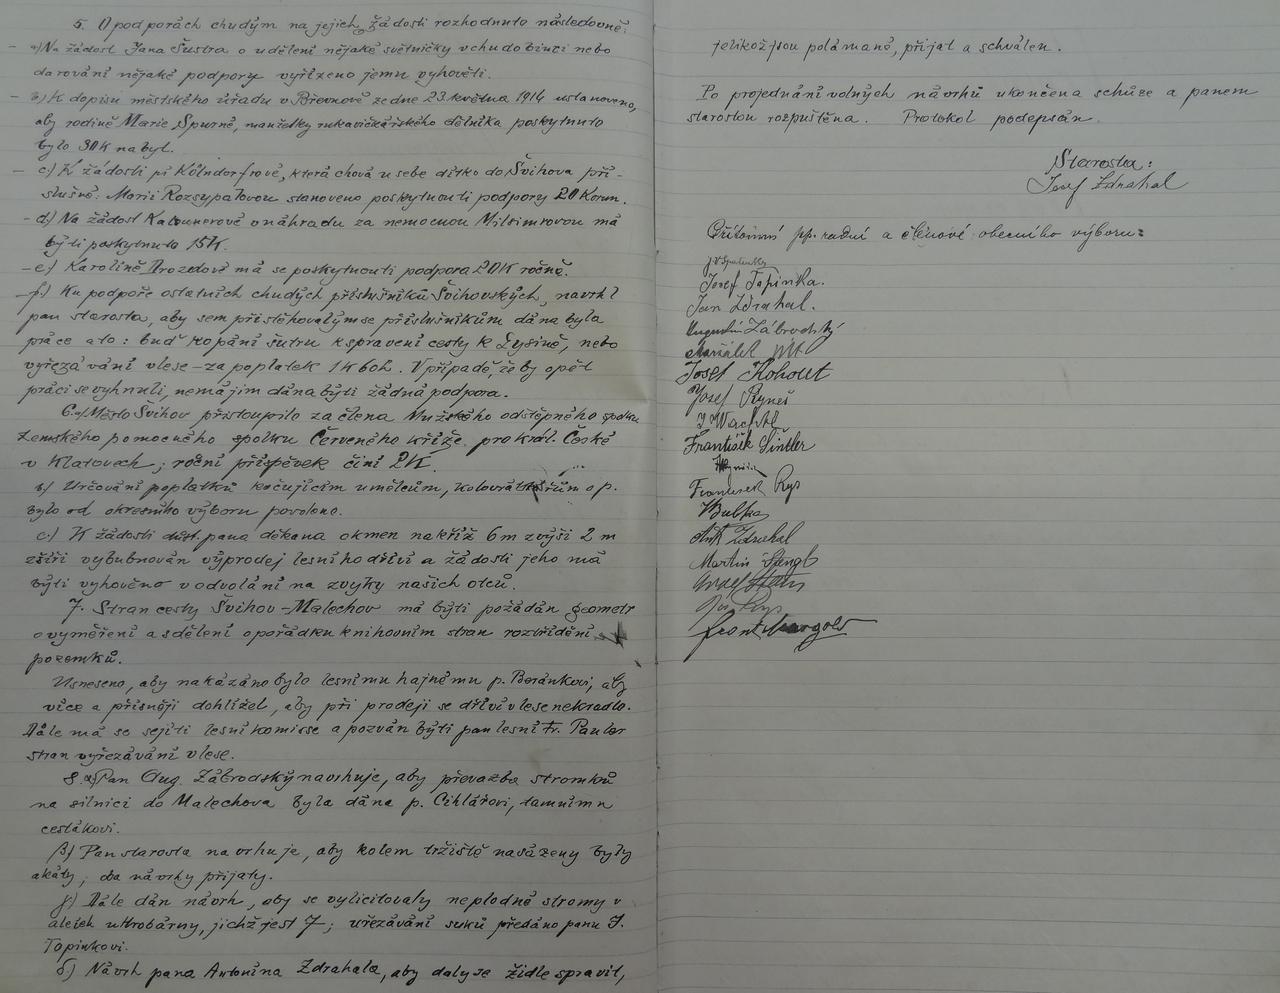 5. O podporách chudým na jejich žádosti rozhodnuto následovně:
a) Na žádost Jana Šustra o udělení nějaké světničky v chudobinci nebo
darování nějaké podpory vyřízeno jemu vyhověti.
b) K dopisu městského úřadu v Břevnově ze dne 23. května 1914 ustanoveno,
aby rodině Marie Spurné, manželky rukavičkářského dělníka poskytnuto
bylo 30 K na byt.
c) K žádosti pí Kölndorfrové, která chová u sebe dítko do Švihova pří-
slušné: Marii Rozsypalovou stanoveno poskytnouti podpory 20 Korun.
d) Na žádost Katounerové o náhradu za nemocnou má
býti poskytnuto 15 K.
e) Karolině Drozdové má se poskytnouti podpora 20 K ročně.
f) Ku podpoře ostatních chudých příslušníků Švihovských, navrhl
pan starosta, aby sem přistěhovalým se příslušníkům dána byla
práce a to: buď kopání šutru k spravení cesty k Lysině, nebo
vyřezávání v lese – za poplatek 1 K 60 h. V případě, že by opět
práci se vyhnuli, nemá jim dána býti žádná podpora.
6. a) Město Švihov přistoupilo za člena Mužského odštěpného spolku
zemského pomocného spolku Červeného kříže pro král. České
v Klatovech; roční příspěvek činí 2 K.
b) Určování poplatků kočujícím umělcům, kolovrátkářům a p.
bylo od okresního výboru povoleno.
c) K žádosti pana děkana okmen nakříž 6 m zvýši 2 m
zšíři vybubnován výprodej lesního dříví a žádosti jeho má
býti vyhověno v odvolání na zvyky našich otců.
7. Stran cesty Švihov – Malechov má býti požádán geometr
o vyměření a sdělení o pořádku knihovním stran roztřídění
pozemků.
Usneseno, aby nakázáno bylo lesnímu hajnému p. Beránkovi, aby
více a přísněji dohlížel, aby při prodeji se dříví v lese nekradlo.
Dále má se sejíti lesní komisse a pozván býti pan lesní Fr. Pauler
stran vyřezávání v lese.
8. α) Pan Aug. Zábrodský navrhuje, aby převazba stromků
na silnici do Malechova byla dána p. Cihlářovi, tamnímu
cestákovi.
β.) Pan starosta navrhuje, aby kolem tržiště nasázeny byly
akáty; oba návrhy přijaty.
γ) Dále dán návrh, aby se vylicitovaly neplodné stromy v
alejch u Hrobárny, jichž jest 7; uřezávání suků předáno panu J.
Topinkovi.
δ) Návrh pana Antonína Zdrahala, aby daly se židle spravit,
jelikož jsou polámané, přijat a schválen.
Po projednání volných návrhů ukončena schůze a panem
starostou rozpuštěna. Protokol podepsán.
Starosta:
Josef Zdrahal
Přítomní pp. radní a členové obecního výboru:
Josef Topinka.
Jan Zdrahal.
Augustin Zábrodský
Maršálek Vít
Josef Kohout
Josef Ryneš
J Wachtl
František Šintler
Frantisek Rys
Bubka
Ant Zdrahal
Martin Štengl
Rys
Frant Margold